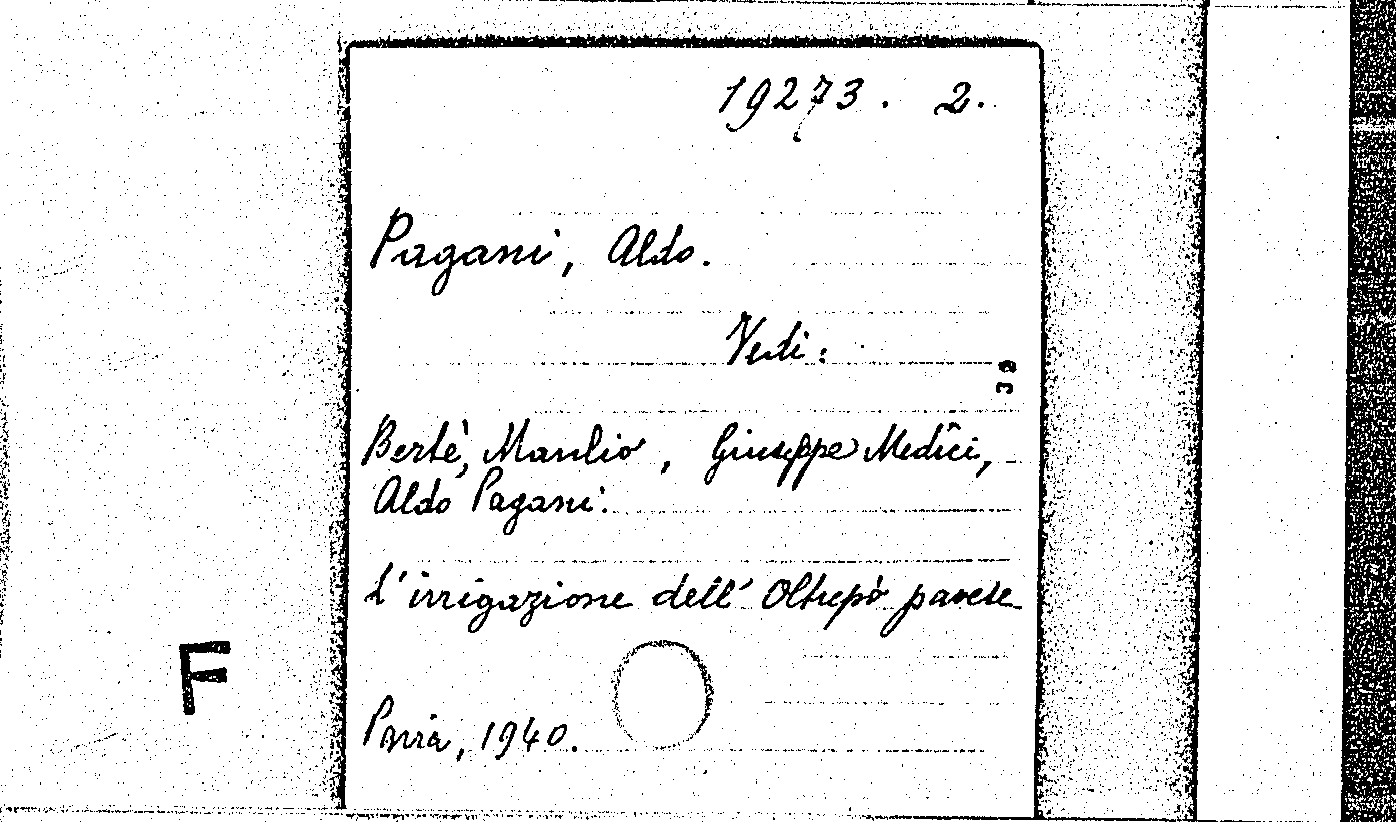 19273. 2.
Pagani, Aldo.
Vedi:
39
Bertè, Manlio, Giuseppe Medici,
Aldo Pagani.
L'irrigazione dell'Oltrepò pavese
F
Pavia, 1940.